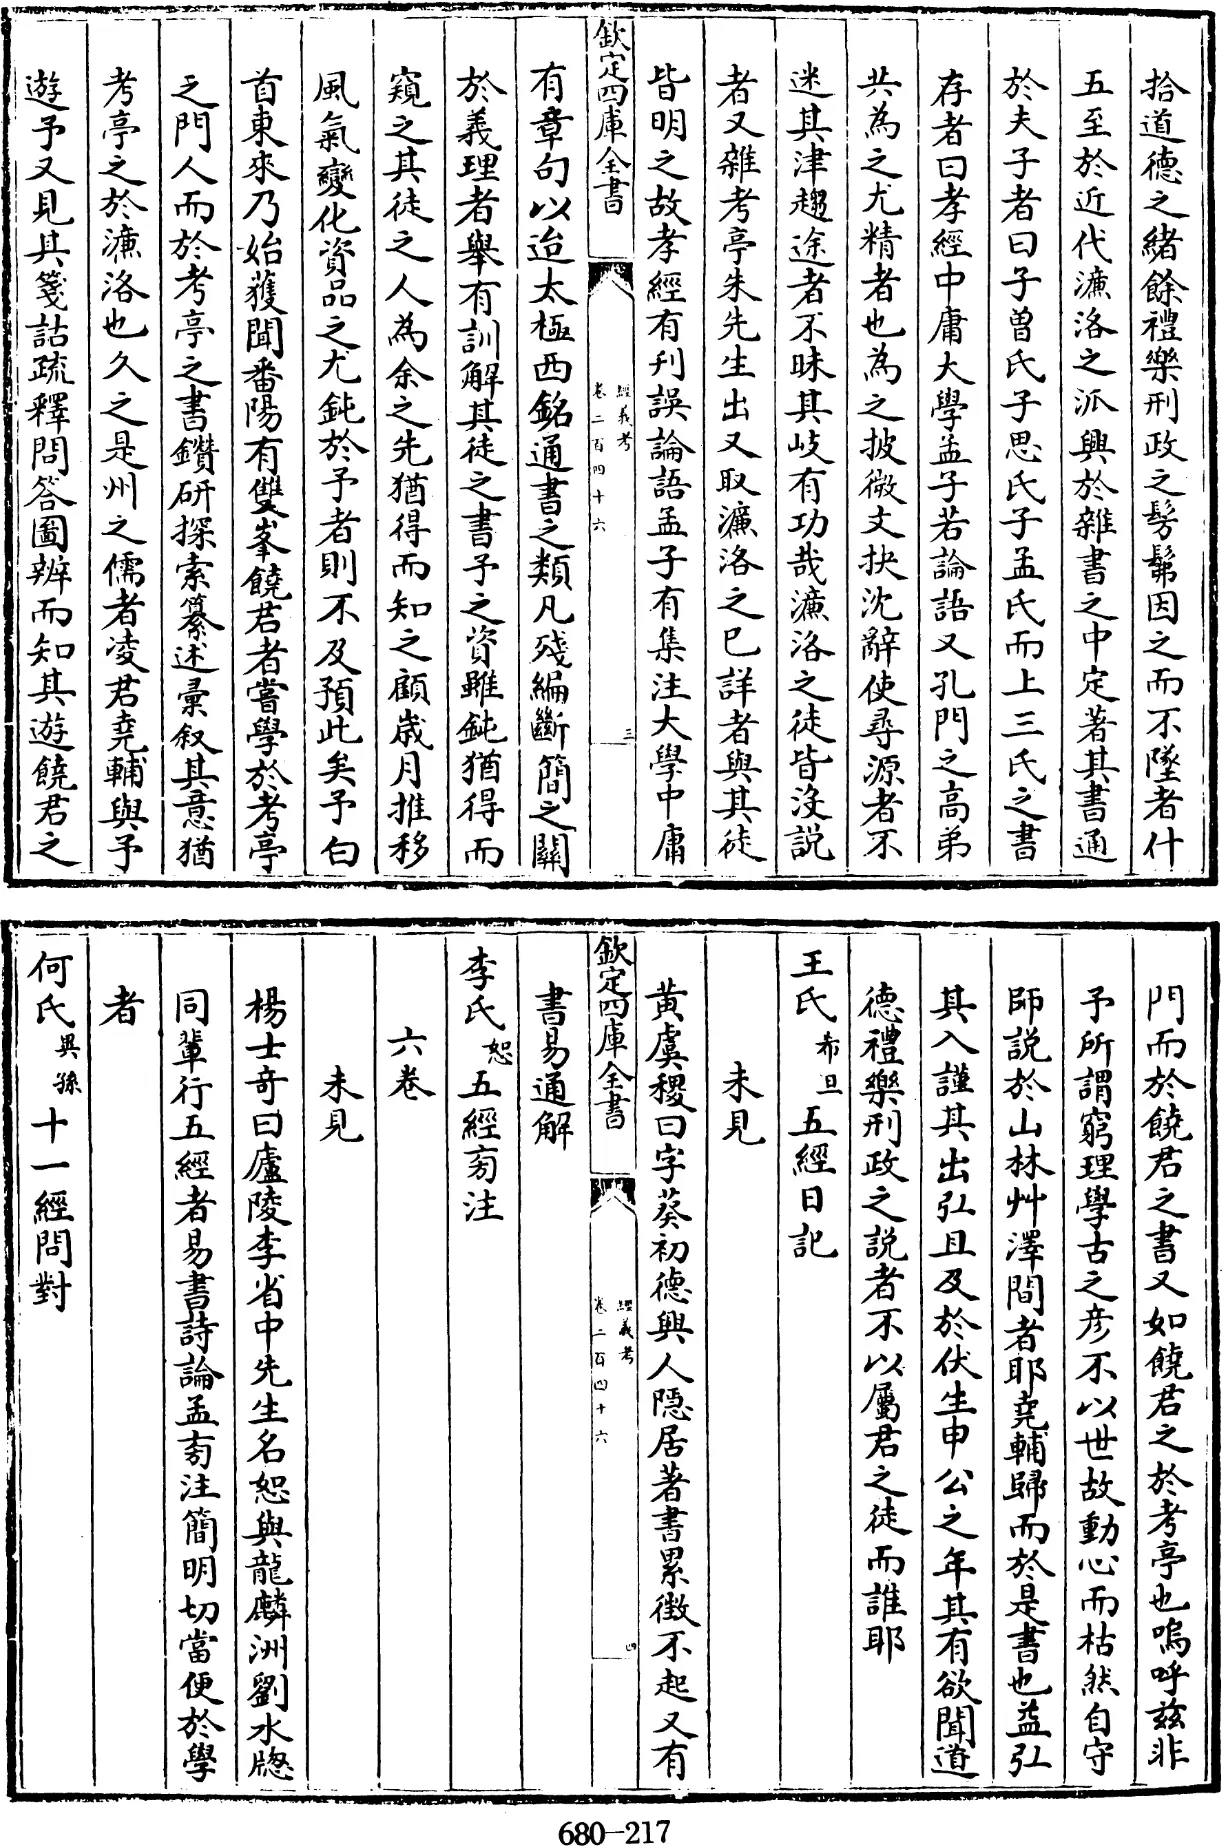 拾道德之緒餘禮樂刑政之髣髴因之而不墜者什
五至於近代濂洛之派興於雜書之中定著其書通
於夫子者曰子曾氏子思氏子孟氏而上三氏之書
存者曰孝經中庸大學孟子若論語又孔門之高弟
共為之尤精者也為之披微文抉沈辭使尋源者不
迷其津趨途者不昧其岐有功哉濂洛之徒皆没説
者又雜考亭朱先生出又取濂洛之已詳者與其徒
皆明之故孝經有刋誤論語孟子有集注大學中庸
欽定四庫全書
經義考
卷二百四十六
三
有章句以迨太極西銘通書之類凡殘編斷簡之關
於義理者舉有訓解其徒之書予之資雖鈍猶得而
窺之其徒之人為余之先猶得而知之顧嵗月推移
風氣變化資品之尤鈍於予者則不及預此矣予白
首東來乃始獲聞番陽有雙峯饒君者嘗學於考亭
之門人而於考亭之書鑽研探索纂述彚叙其意猶
考亭之於濂洛也久之是州之儒者凌君堯輔與予
遊予又見其箋詁疏釋問答圖辨而知其遊饒君之
門而於饒君之書又如饒君之於考亭也嗚呼兹非
予所謂窮理學古之彦不以世故動心而枯然自守
師説於山林艸澤間者耶堯輔歸而於是書也益弘
其入謹其出弘且及於伏生申公之年其有欲聞道
德禮樂刑政之説者不以屬君之徒而誰耶
王氏希旦五經日記
未見
黄虞稷曰字葵初德興人隠居著書累徴不起又有
欽定四庫全書
經義考
卷二百四十六
四
書易通解
李氏恕五經旁注
六卷
未見
楊士奇曰廬陵李省中先生名恕與龍麟洲劉水牕
同輩行五經者易書詩論孟旁注簡明切當便於學
者
何氏異孫十一經問對
680-217